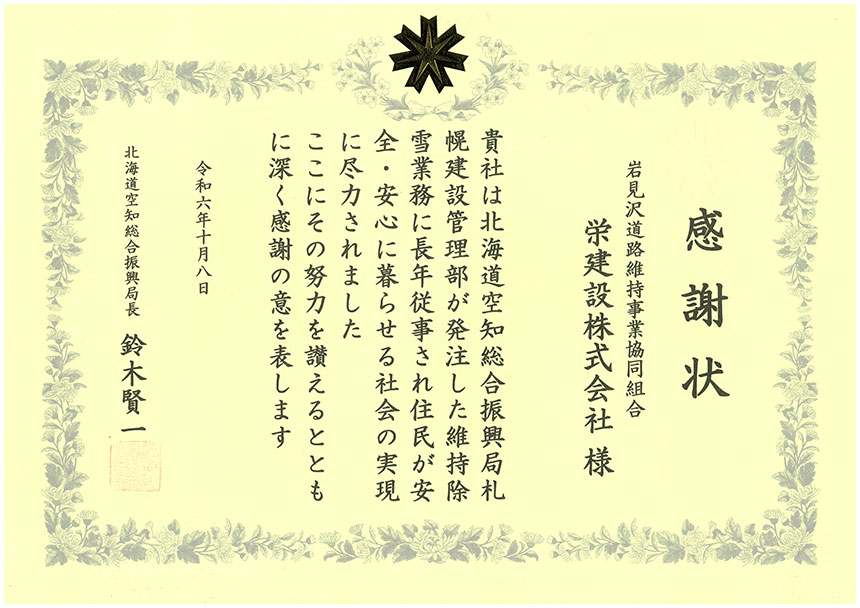 感謝状
岩見沢道路維持事業協同組合
栄建設株式会社 様
貴社は北海道空知総合振興局札
幌建設管理部が発注した維持除
雪業務に長年従事され住民が安
全・安心に暮らせる社会の実現
に尽力されました
ここにその努力を讃えるととも
に深く感謝の意を表します
令和六年十月八日
北海道空知総合振興局長 鈴木賢一